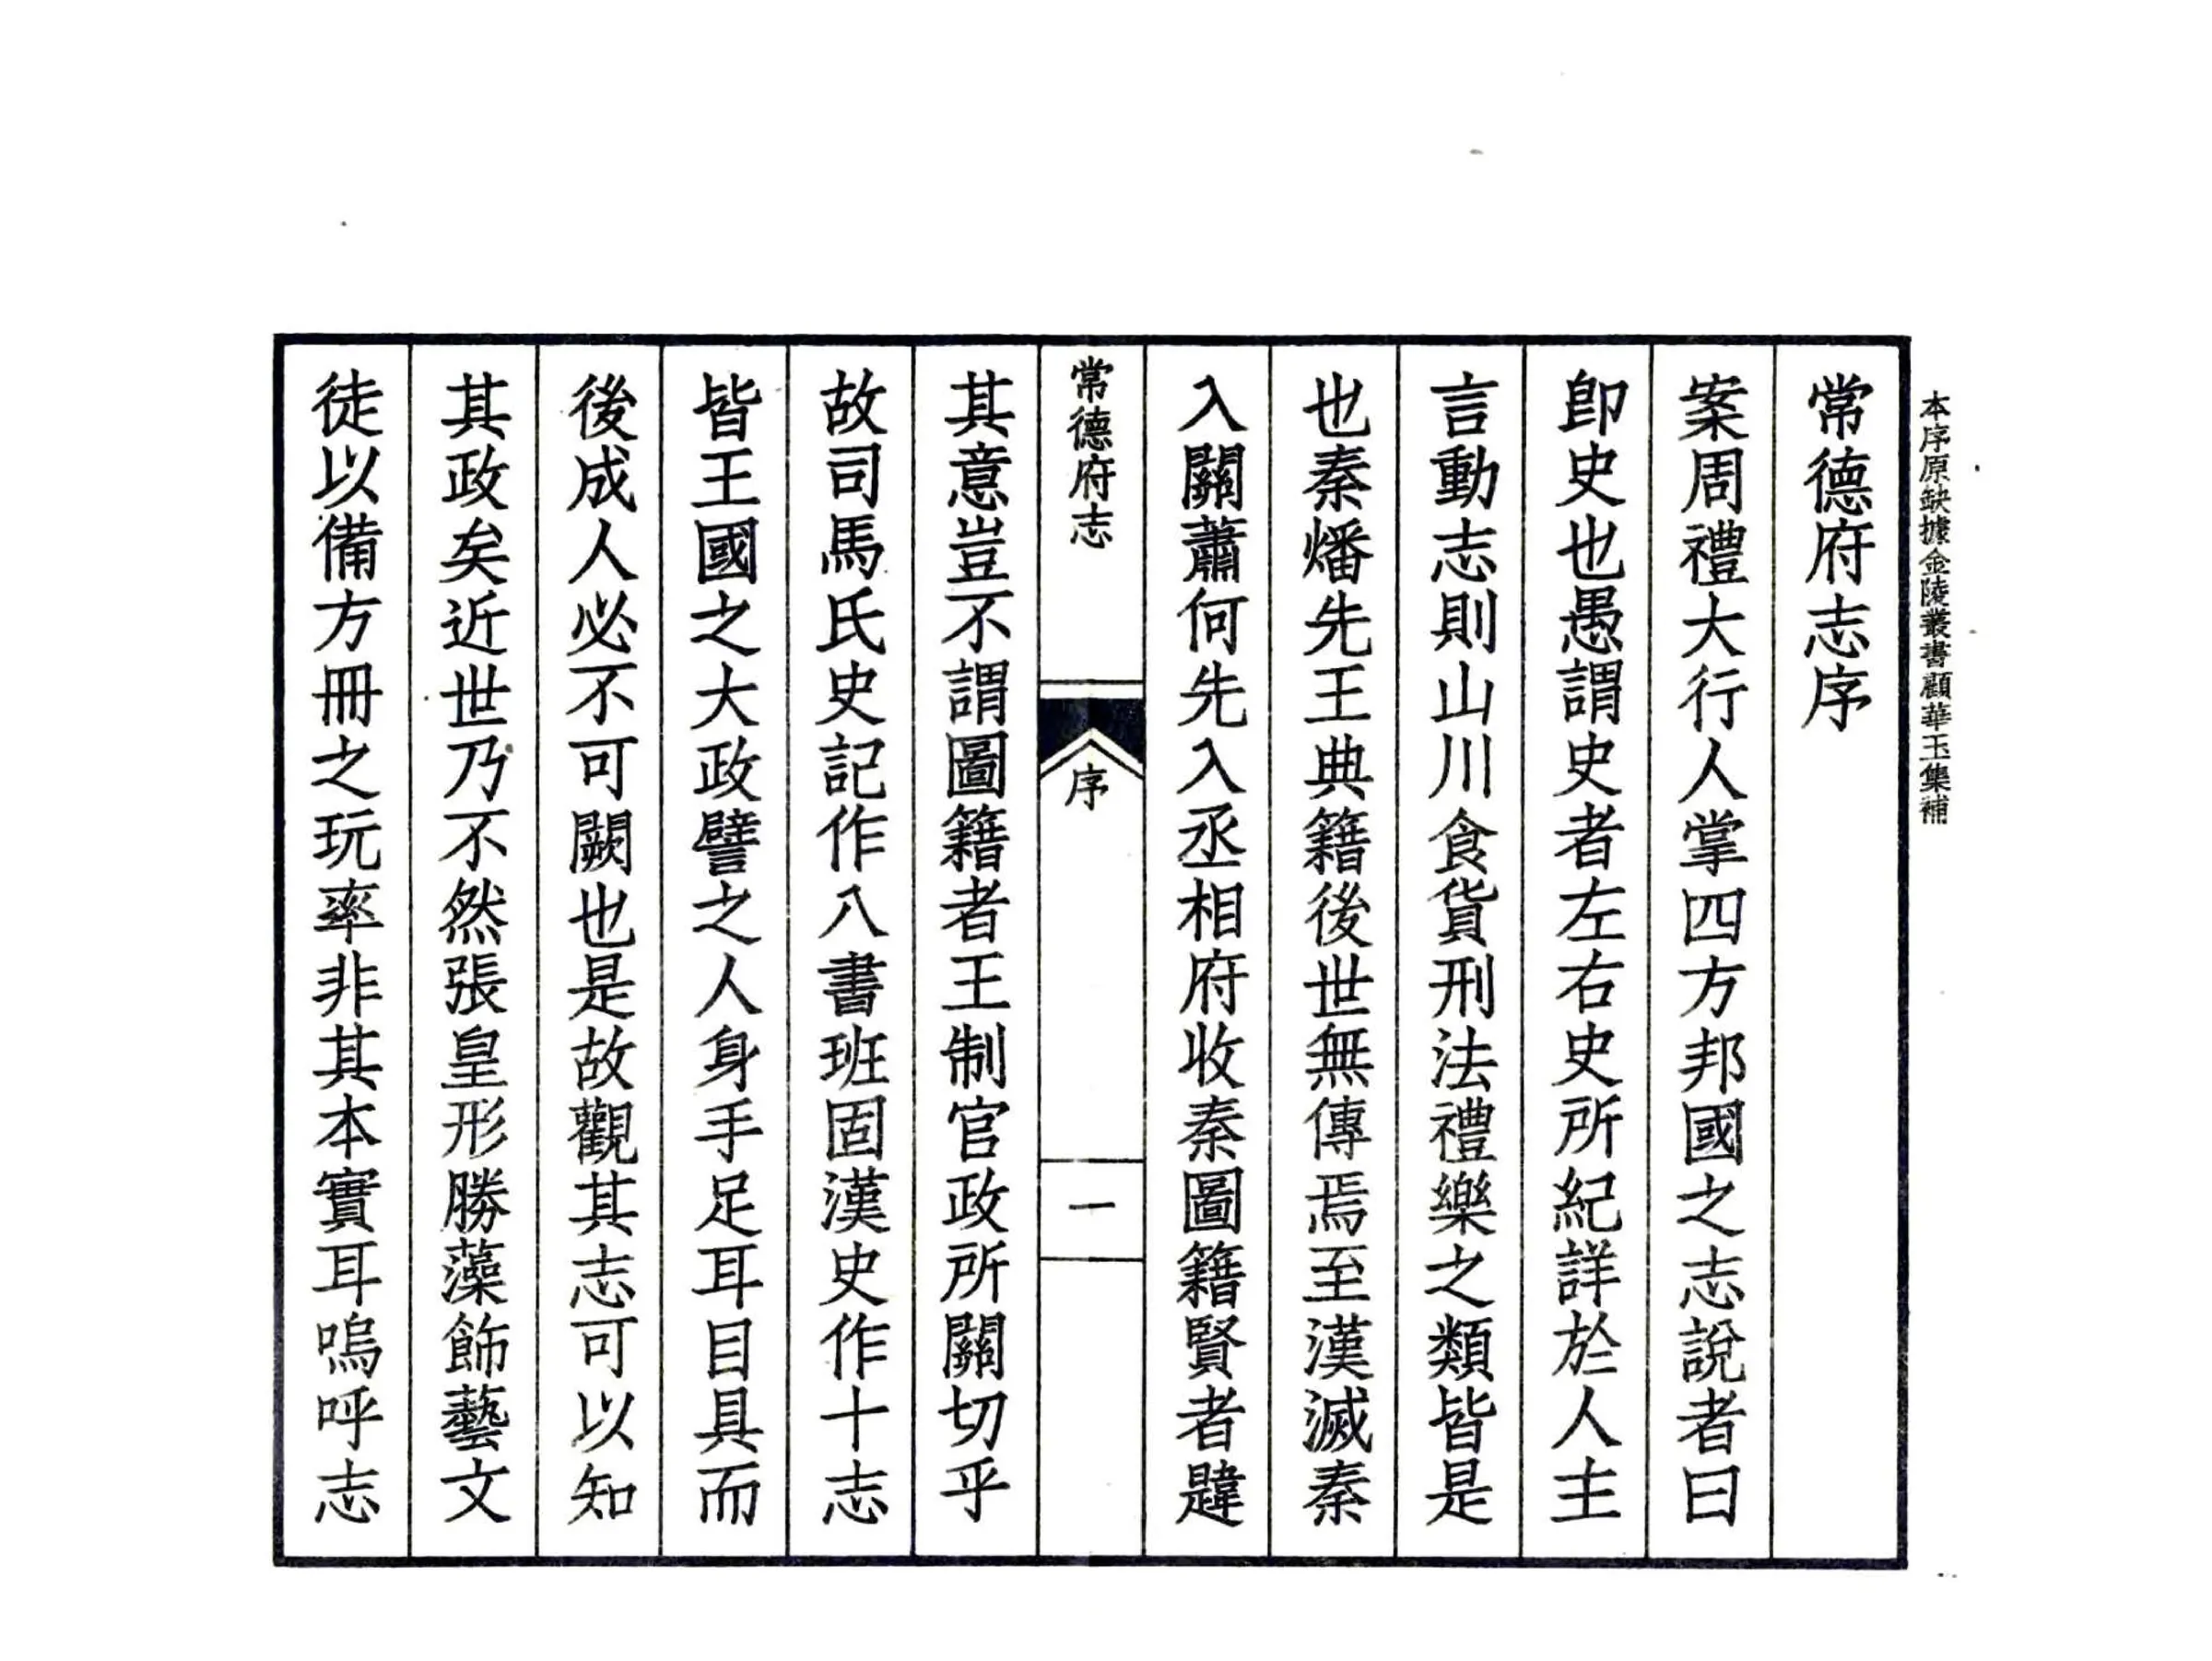 本序原缺據金陵叢書顧華玉集補
常德府志序
案周禮大行人掌四方邦國之志說者曰
卽史也愚謂史者左右史所紀詳於人主
言動志則山川食貨刑法禮樂之類皆是
也秦燔先王典籍後世無傳焉至漢滅秦
入關蕭何先入丞相府收秦圖籍賢者韙
常德府志
序
一
其意豈不謂圖籍者王制官政所關切乎
故司馬氏史記作八書班固漢史作十志
皆王國之大政譬之人身手足耳目具而
後成人必不可闕也是故觀其志可以知
其政矣近世乃不然張皇形勝藻飾藝文
徒以備方冊之玩率非其本實耳嗚呼志